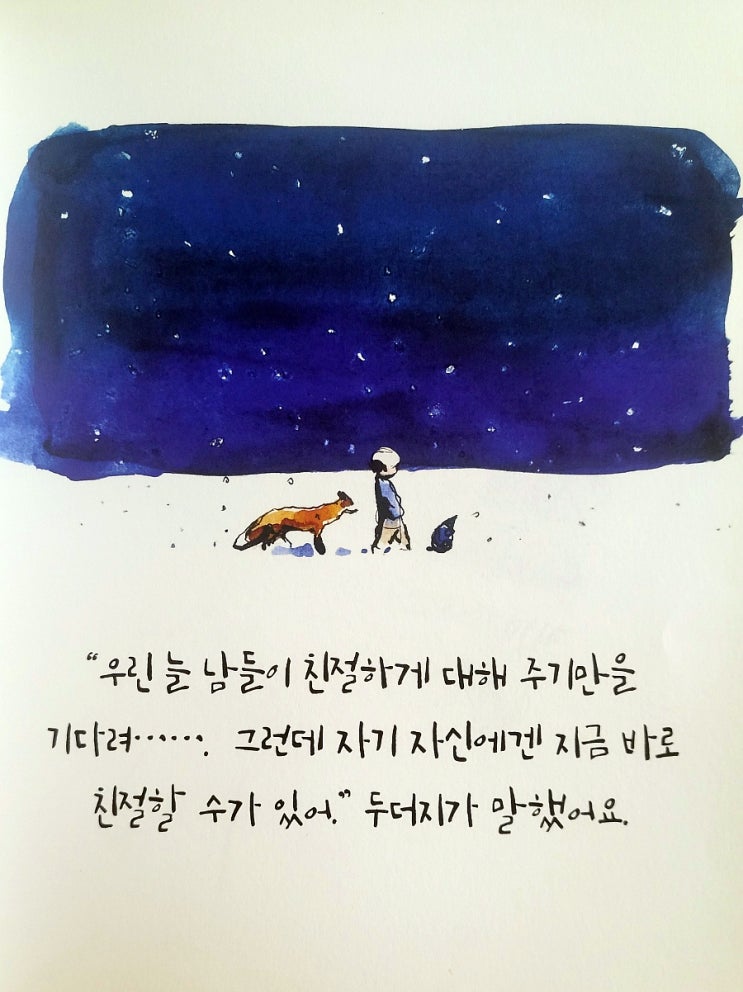 “우린 늘 남들이 친절하게 대해 주기만을
기다려……. 그런데 자기 자신에겐 지금 바로
친절할 수가 있어.” 두더지가 말했어요.